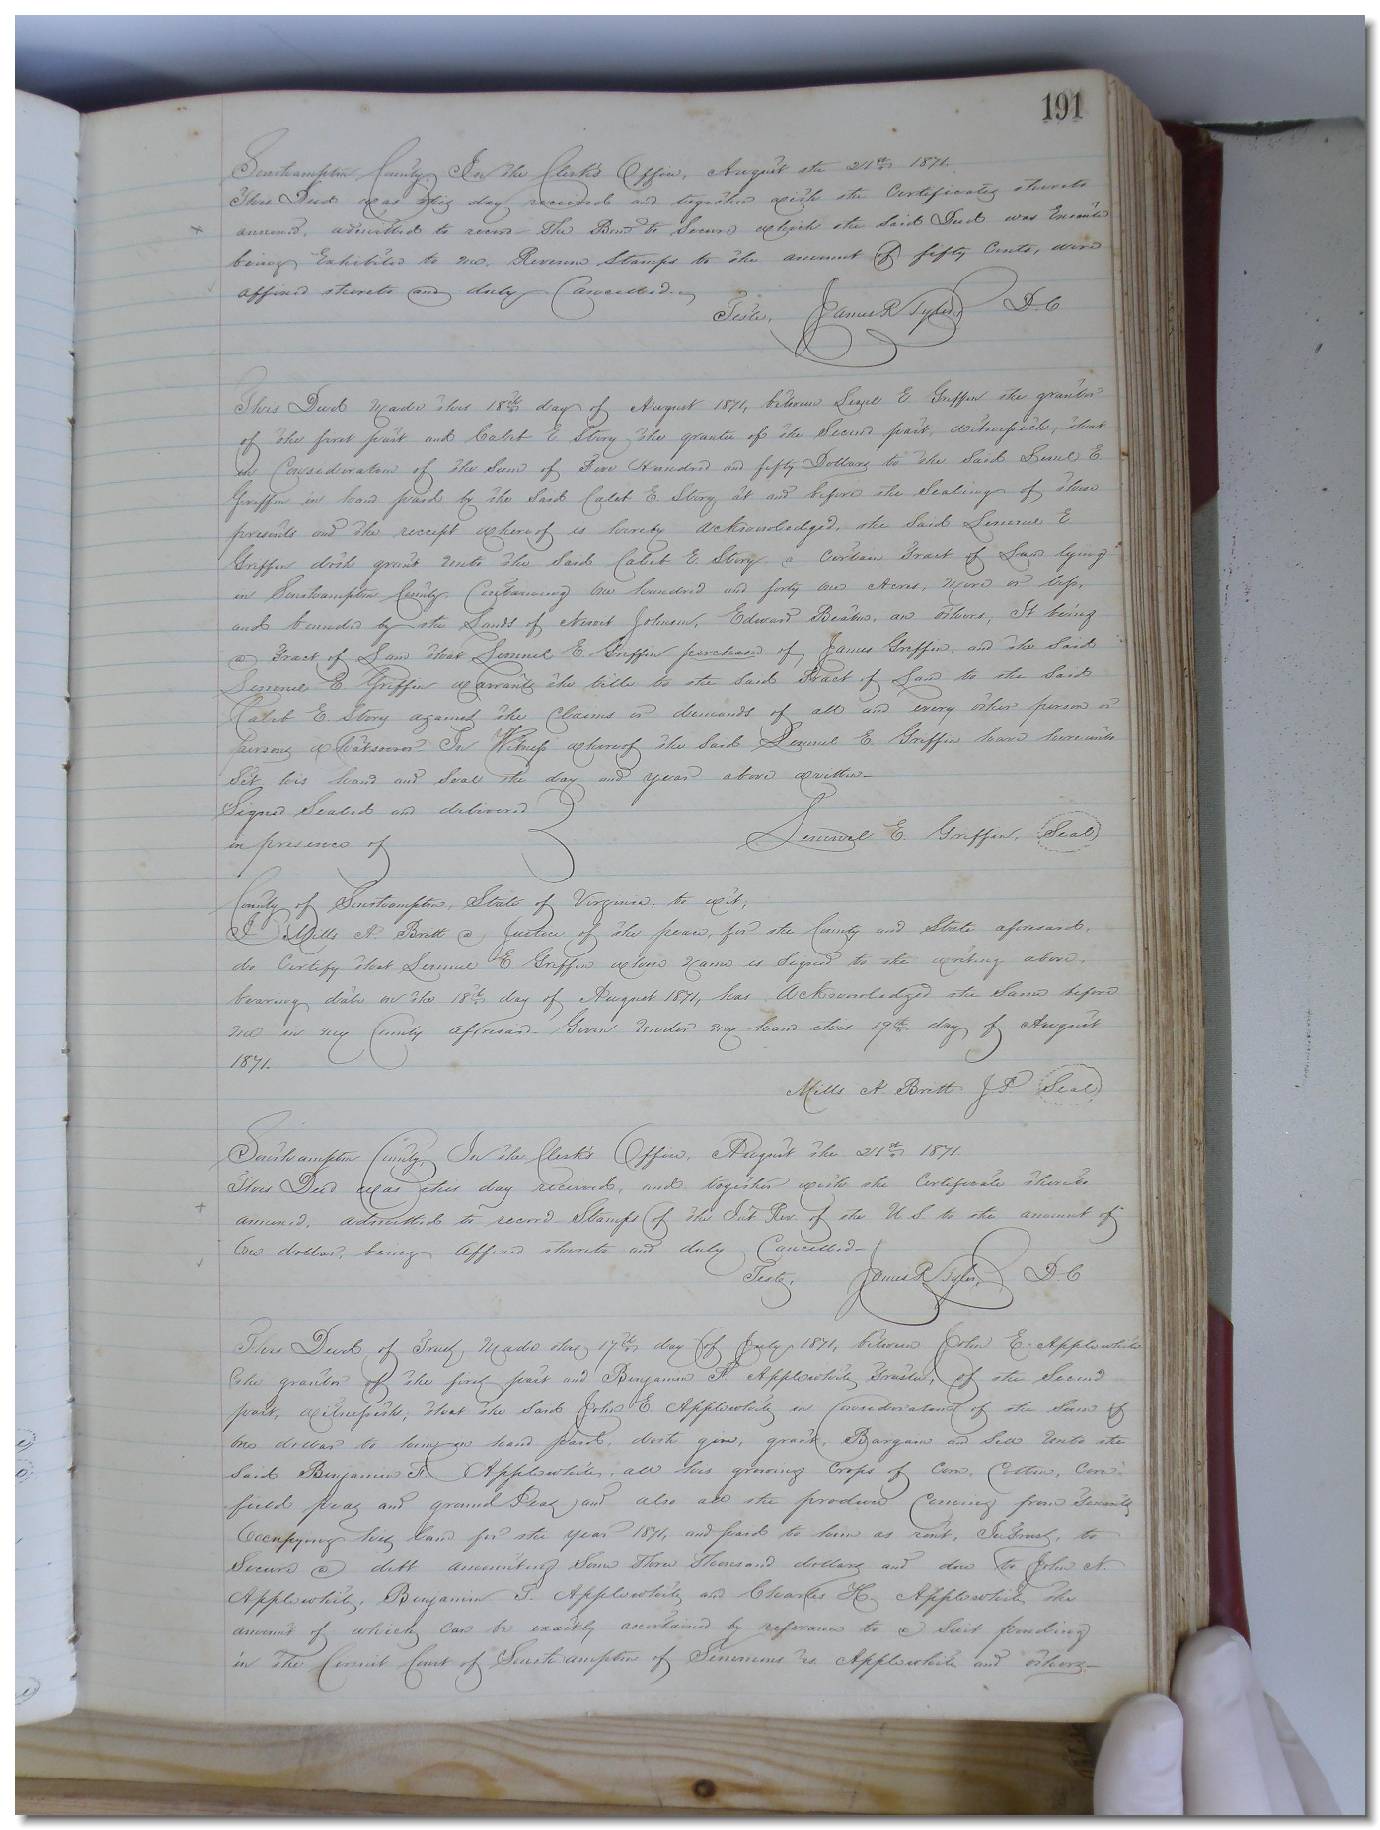 191
Southampton County, In the Clerk's Office, August the 21st 1871.
This Deed was this day received and together with the Certificates thereto
annexed, admitted to record. The Bond to Secure which the said Deed was Executed
being Exhibited to me. Revenue Stamps to the amount of fifty Cents, were
affixed thereto and duly Cancelled.
Teste, James R Tyler, D. C
This Deed Made this 18th day of August 1871, between Leml E Griffin the grantor
of the first part and Caleb E Story the grantee of the Second part, witnesseth, that
in Consideration of the Sum of Five Hundred and fifty Dollars to the Said Leml E
Griffin in hand paid by the Said Caleb E. Story at and before the Sealing of these
presents and the receipt whereof is hereby acknowledged, the Said Lemuel E
Griffin doth grant unto the Said Caleb E. Story a certain Tract of Land lying
in Southampton County, Containing one hundred and forty one Acres, more or less,
and bounded by the Lands of Johnson, Edward Beaton, and others, It being
a Tract of Land that Lemuel E. Griffin purchased of James Griffin, and the Said
Lemuel E Griffin warrants the title to the Said Tract of Land to the Said
Caleb E Story against the Claims or demands of all and every other person or
persons whatsoever In Witness whereof the Said Lemuel E. Griffin have hereunto
Set his hand and Seal the day and year above written—
Signed Sealed and delivered
in presence of
Lemuel E. Griffin, Seal
County of Southampton, State of Virginia, to wit,
I Mills A. Britt a Justice of the peace, for the County and State aforesaid,
do Certify that Lemuel E Griffin whose name is Signed to the writing above,
bearing date on the 18th day of August 1871, has Acknowledged the Same before
me in my County aforesaid. Given under my hand this 19th day of August
1871.
Mills A. Britt J.P. Seal
Southampton County, In the Clerk's Office, August the 21st 1871
This Deed was this day received, and together with the Certificate thereto
annexed, admitted to record Stamps of the Int. Rev. of the U. S. to the amount of
One dollar, being affixed thereto and duly Cancelled—
Teste, James R Tyler, D. C
This Deed of Trust, Made this 17th day of July 1871, between John E. Applewhite
the grantor of the first part and Benjamin F. Applewhite, Trustee, of the Second
part, witnesseth, that the Said John E. Applewhite in Consideration of the Sum of
One dollar to him in hand paid, doth give, grant, Bargain and Sell Unto the
Said Benjamin F. Applewhite, all his growing Crops of Corn, Cotton, Corn-
field peas and ground Peas, and also all the produce Coming from Tenants
Occupying his land for the year 1871, and paid to him as rent, In Trust, to
Secure a debt amounting Some Three Thousand dollars and due to John N.
Applewhite, Benjamin F. Applewhite and Charles H. Applewhite the
amount of which can be exactly ascertained by reference to a Suit pending
in the Circuit Court of Southampton of Simmons vs. Applewhite and others—